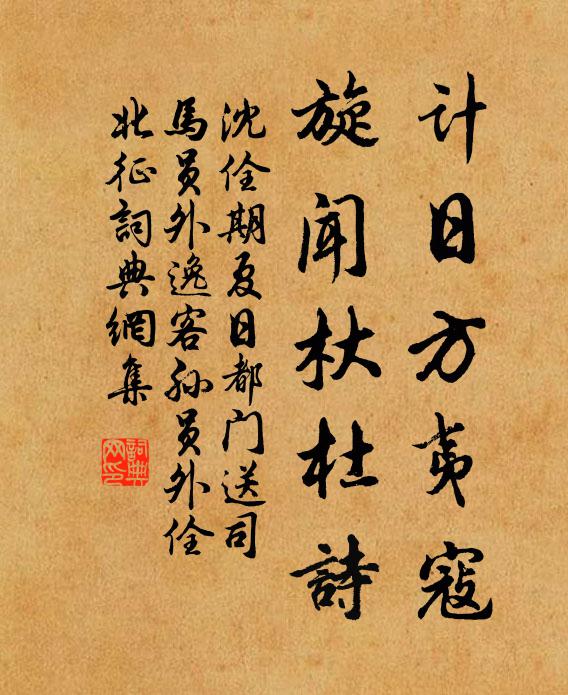 计日方夷寇
旋闻杕杜詩
沈佺期夏日都门送司
馬员外逸客孙员外佺
北征詞典網集
詞典网印